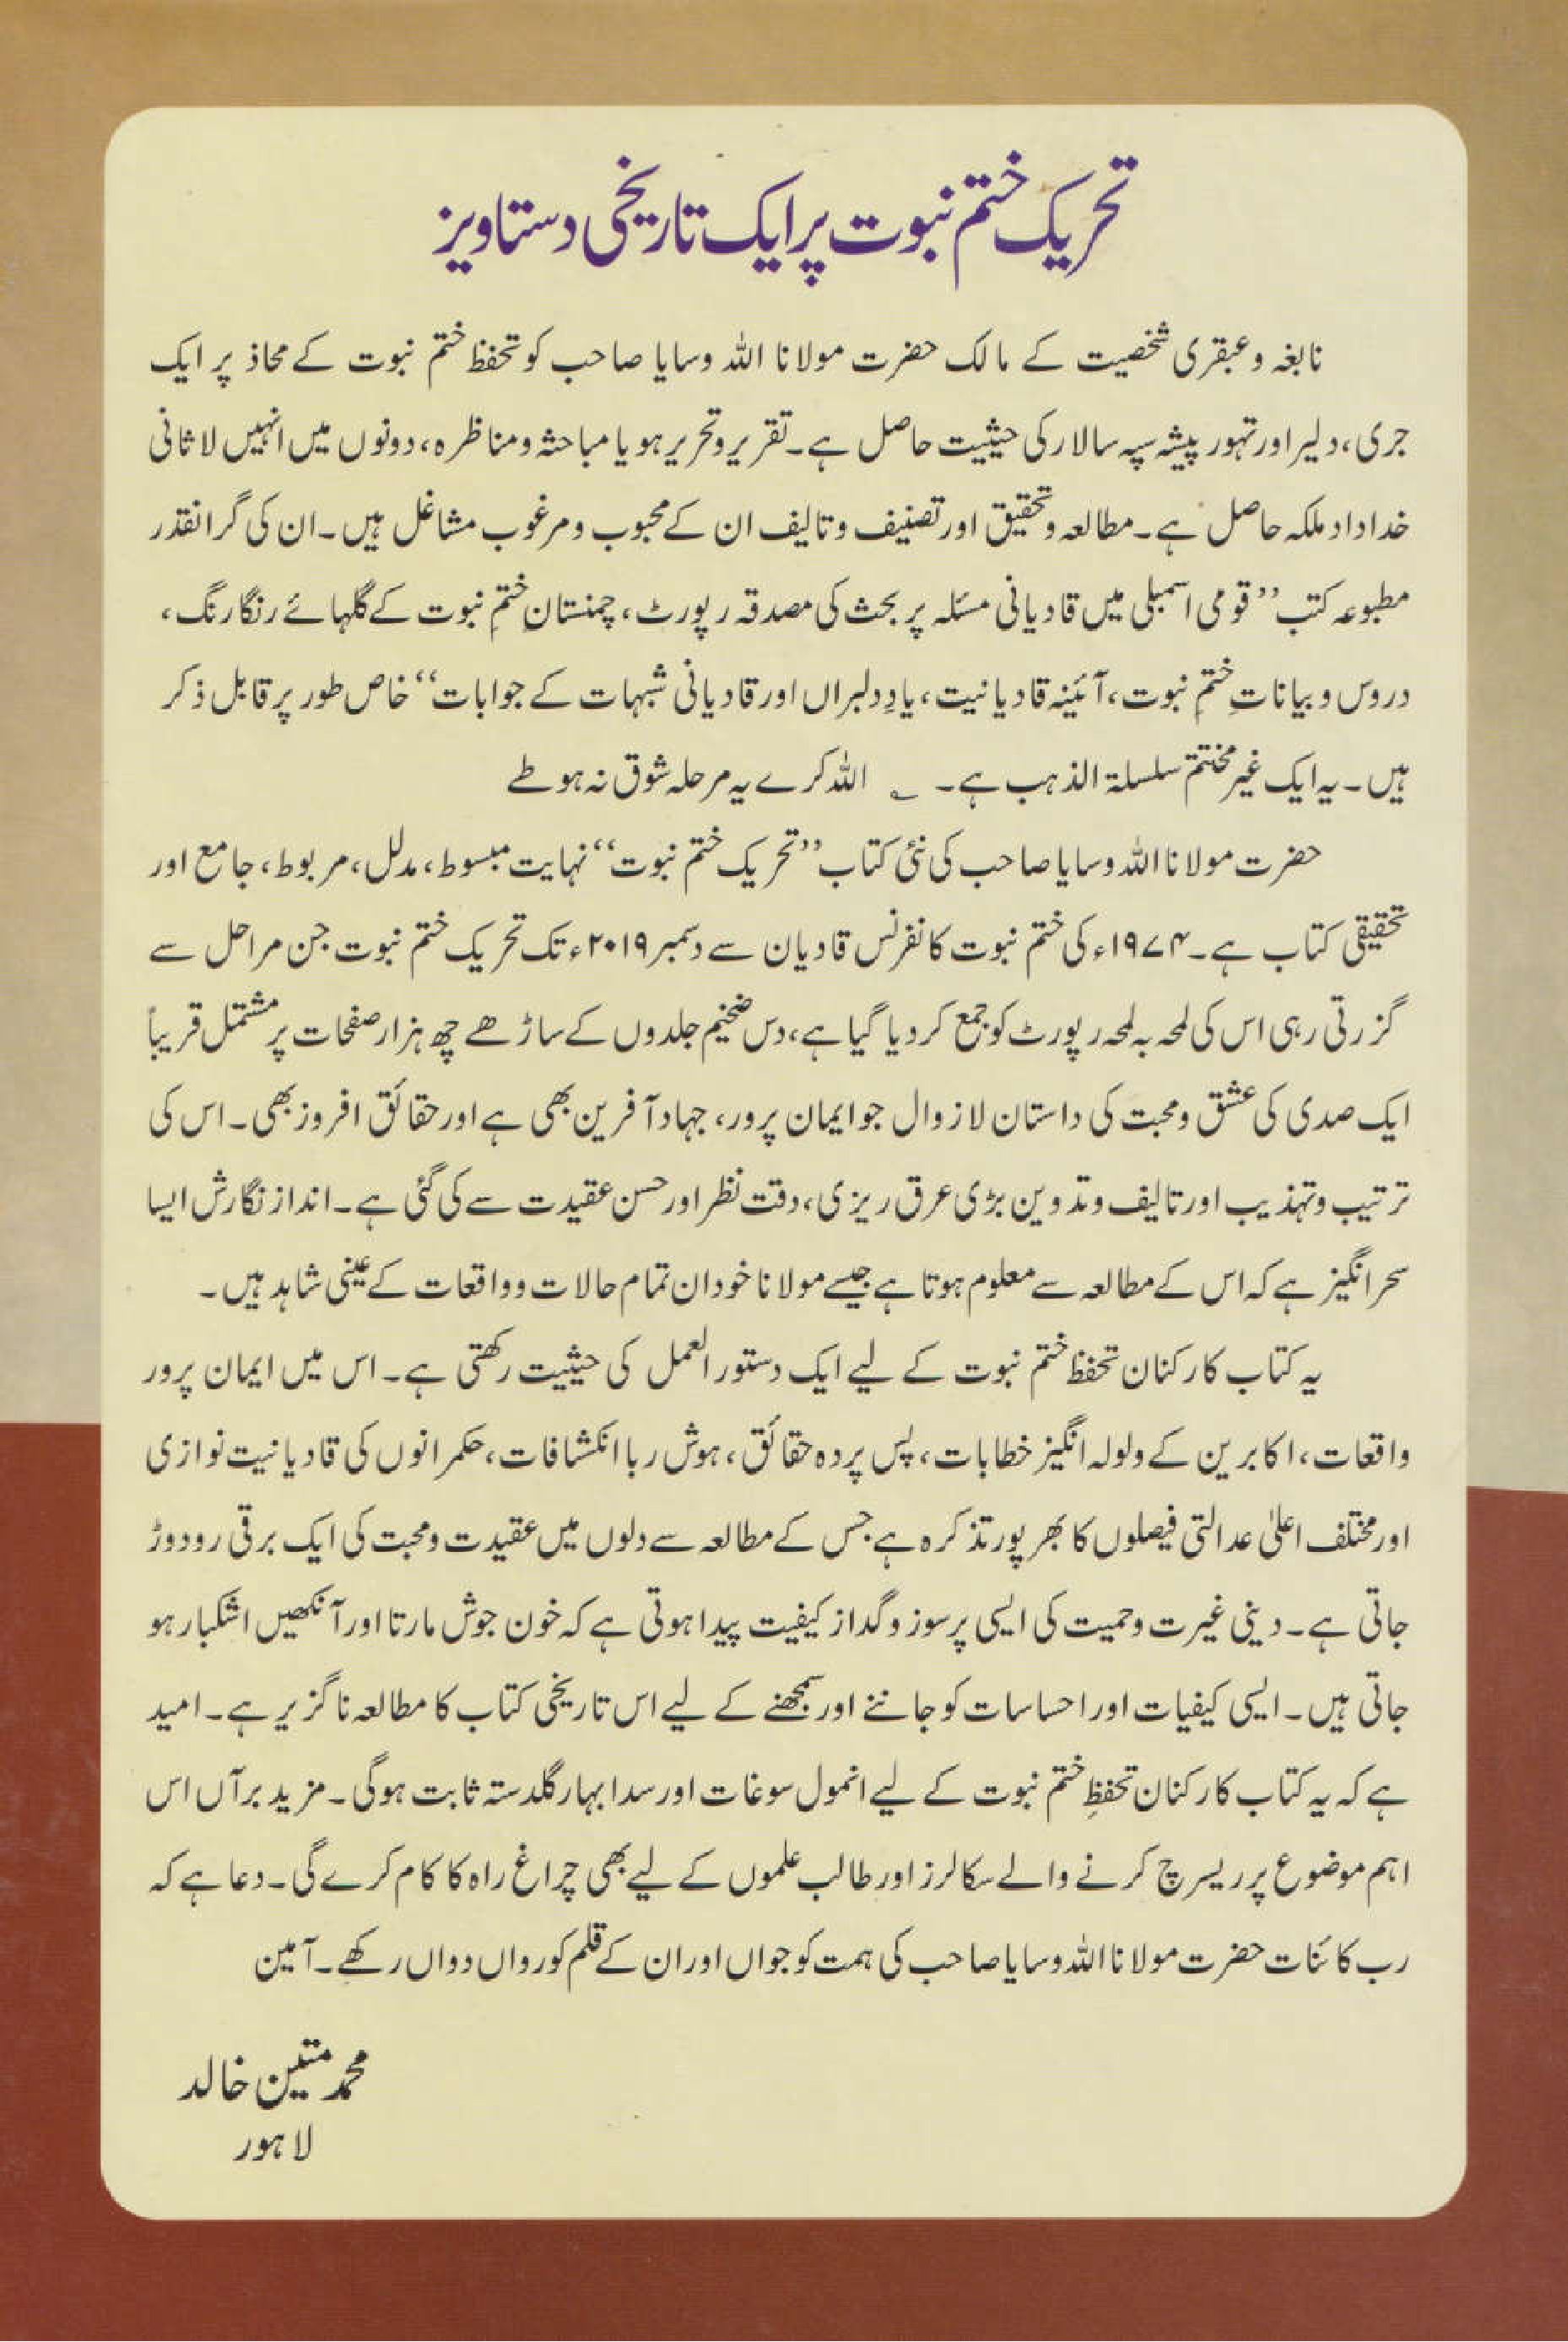 تحریک ختم نبوت پر ایک تاریخی دستاویز
نابغہ و عبقری شخصیت کے مالک حضرت مولانا اللہ وسایا صاحب کو تحفظ ختم نبوت کے محاذ پر ایک
جری، دلیر اور تہور پیشہ سپہ سالار کی حیثیت حاصل ہے۔ تقریر و تحریر ہو یا مباحثہ و مناظرہ، دونوں میں انہیں لاثانی
خداداد ملکہ حاصل ہے۔ مطالعہ و تحقیق اور تصنیف و تالیف ان کے محبوب و مرغوب مشاغل ہیں۔ ان کی گرانقدر
مطبوعہ کتب ’’قومی اسمبلی میں قادیانی مسئلہ پر بحث کی مصدقہ رپورٹ، چمنستانِ ختمِ نبوت کے گلہائے رنگا رنگ،
دروس و بیاناتِ ختمِ نبوت، آئینہ قادیانیت، یادِ دلبراں اور قادیانی شبہات کے جوابات‘‘ خاص طور پر قابل ذکر
ہیں۔ یہ ایک غیر مختتم سلسلۃ الذہب ہے۔ ؎ اللہ کرے یہ مرحلہ شوق نہ ہو طے
حضرت مولانا اللہ وسایا صاحب کی نئی کتاب ’’تحریک ختم نبوت‘‘ نہایت مبسوط، مدلل، مربوط، جامع اور
تحقیقی کتاب ہے۔ ۱۹۷۴ء کی ختم نبوت کانفرنس قادیان سے دسمبر ۲۰۱۹ء تک تحریک ختم نبوت جن مراحل سے
گزرتی رہی اس کی لمحہ بہ لمحہ رپورٹ کو جمع کر دیا گیا ہے، دس ضخیم جلدوں کے ساڑھے چھ ہزار صفحات پر مشتمل قریباً
ایک صدی کی عشق و محبت کی داستان لازوال جو ایمان پرور، جہاد آفرین بھی ہے اور حقائق افروز بھی۔ اس کی
ترتیب و تہذیب اور تالیف و تدوین بڑی عرق ریزی، دقت نظر اور حسن عقیدت سے کی گئی ہے۔ انداز نگارش ایسا
سحر انگیز ہے کہ اس کے مطالعہ سے معلوم ہوتا ہے جیسے مولانا خود ان تمام حالات و واقعات کے عینی شاہد ہیں۔
یہ کتاب کارکنان تحفظ ختم نبوت کے لیے ایک دستور العمل کی حیثیت رکھتی ہے۔ اس میں ایمان پرور
واقعات، اکابرین کے ولولہ انگیز خطابات، پس پردہ حقائق، ہوش ربا انکشافات، حکمرانوں کی قادیانیت نوازی
اور مختلف اعلیٰ عدالتی فیصلوں کا بھر پور تذکرہ ہے جس کے مطالعہ سے دلوں میں عقیدت و محبت کی ایک برقی رو دوڑ
جاتی ہے۔ دینی غیرت و حمیت کی ایسی پرسوز و گداز کیفیت پیدا ہوتی ہے کہ خون جوش مارتا اور آنکھیں اشکبار ہو
جاتی ہیں۔ ایسی کیفیات اور احساسات کو جاننے اور سمجھنے کے لیے اس تاریخی کتاب کا مطالعہ ناگزیر ہے۔ امید
ہے کہ یہ کتاب کارکنان تحفظِ ختم نبوت کے لیے انمول سوغات اور سدا بہار گلدستہ ثابت ہوگی۔ مزید برآں اس
اہم موضوع پر ریسرچ کرنے والے سکالرز اور طالب علموں کے لیے بھی چراغ راہ کا کام کرے گی۔ دعا ہے کہ
رب کائنات حضرت مولانا اللہ وسایا صاحب کی ہمت کو جواں اور ان کے قلم کو رواں دواں رکھے۔ آمین
محمد متین خالد
لاہور